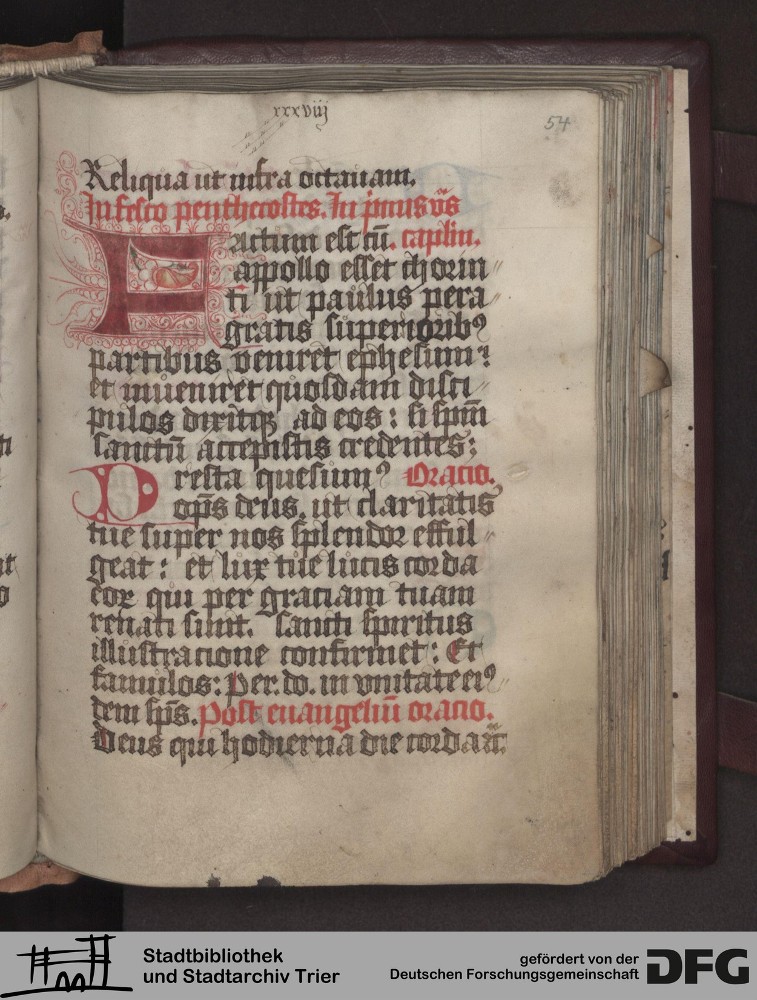 xxxviij
54
Reliqua ut infra octauam.
In festo penthecostes. In pͥmis vs̄
Factum est cū. caplm̄.
appollo esset chorin
ti ut paulus pera
gratis superioribꝰ
partibus veniret ephesum:
et inueniret quosdam disci
pulos dixitqꝫ ad eos: si spm̄
sanctū accepistis credentes;
Presta quesumꝰ Oracio.
op̄s deus. ut claritatis
tue super nos splendor efful
geat: et lux tue lucis corda
eoꝝ qui per graciam tuam
renati sunt. sancti spiritus
illustracione confirmet: Et
famulos: Per. do. in vnitate eiꝰ
dem sp̄s. Post euangeliū oracio.
Deus qui hodierna die corda &c̄.
Stadtbibliothek
und Stadtarchiv Trier
gefördert von der
Deutschen Forschungsgemeinschaft
DFG